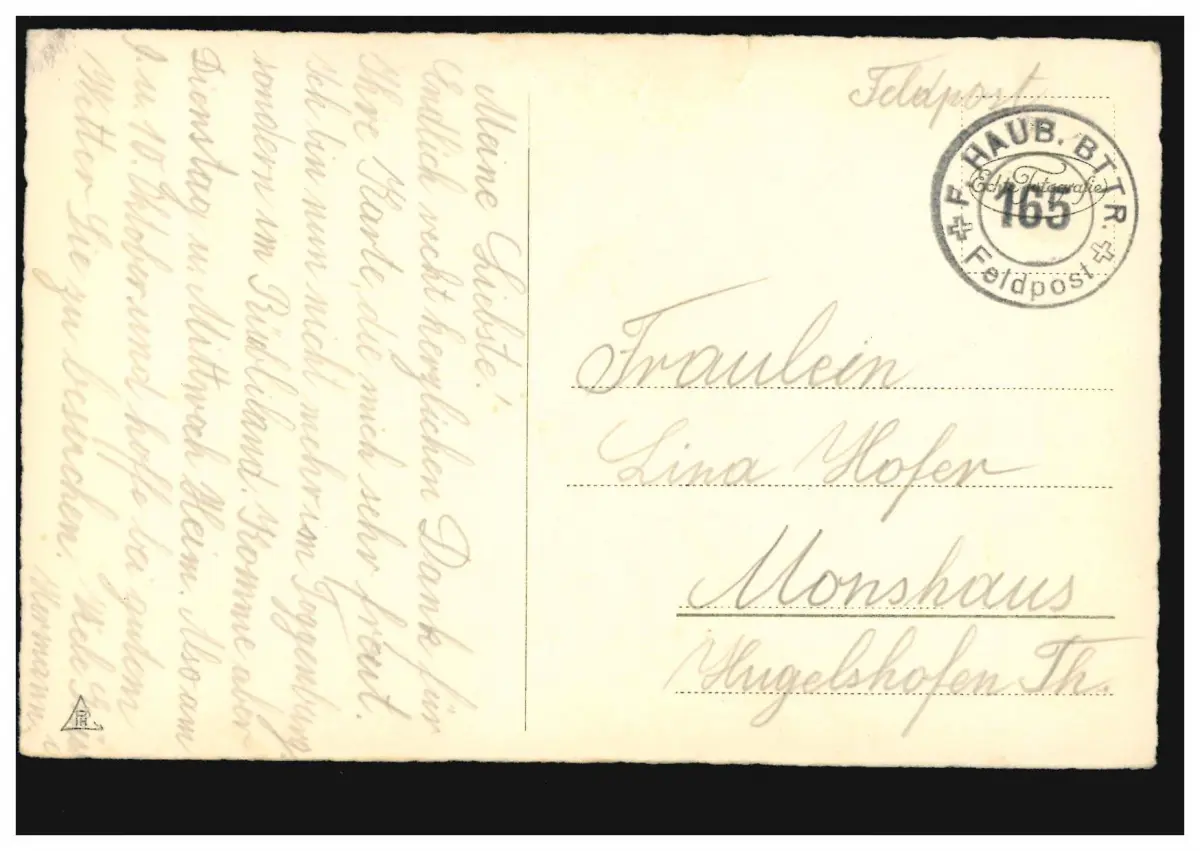 Meine Liebste!
Endlich recht herzlichen Dank für
Ihre Karte, die mich sehr freut.
Ich bin nun nicht mehr im Toggenburg,
sondern im Rübliland. Komme aber
Dienstag u. Mittwoch Heim. Also am
9. u. 10. Oktober und hoffe bei gutem
Wetter Sie zu besuchen. Viele
Hermann.
Feldpost
F. HAUB. BTTR.
165
Feldpost
Echte Fotografie
Fräulein
Lina Hofer
Monshaus
Hugelshofen Th.